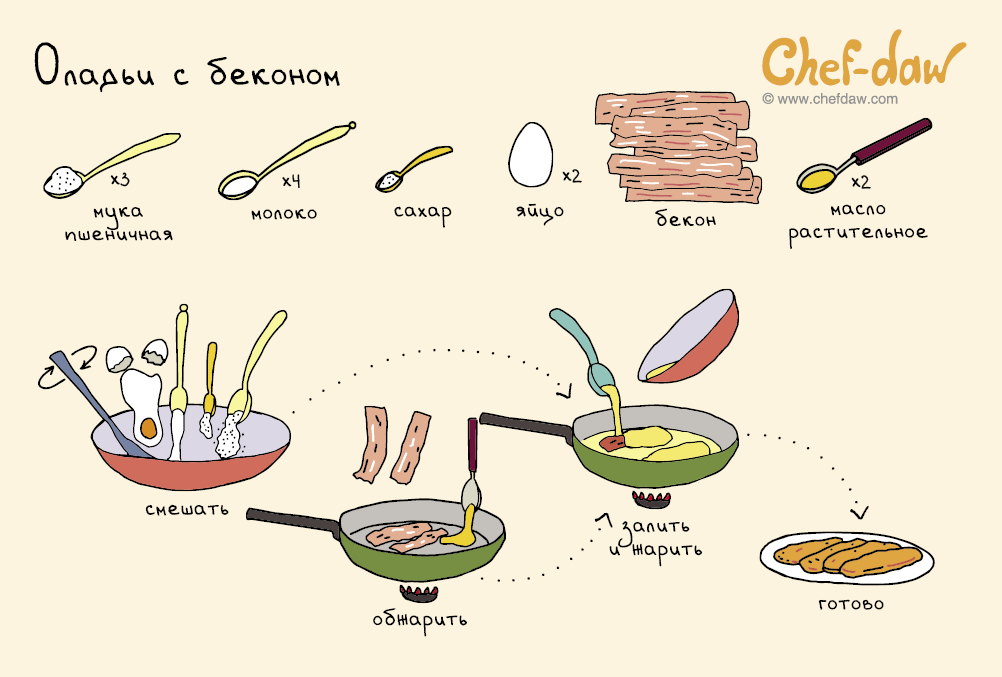 Оладьи с беконом
Chef-daw
© www.chefdaw.com
x3
мука
пшеничная
x4
молоко
сахар
x2
яйцо
бекон
x2
масло
растительное
смешать
обжарить
залить
и жарить
готово